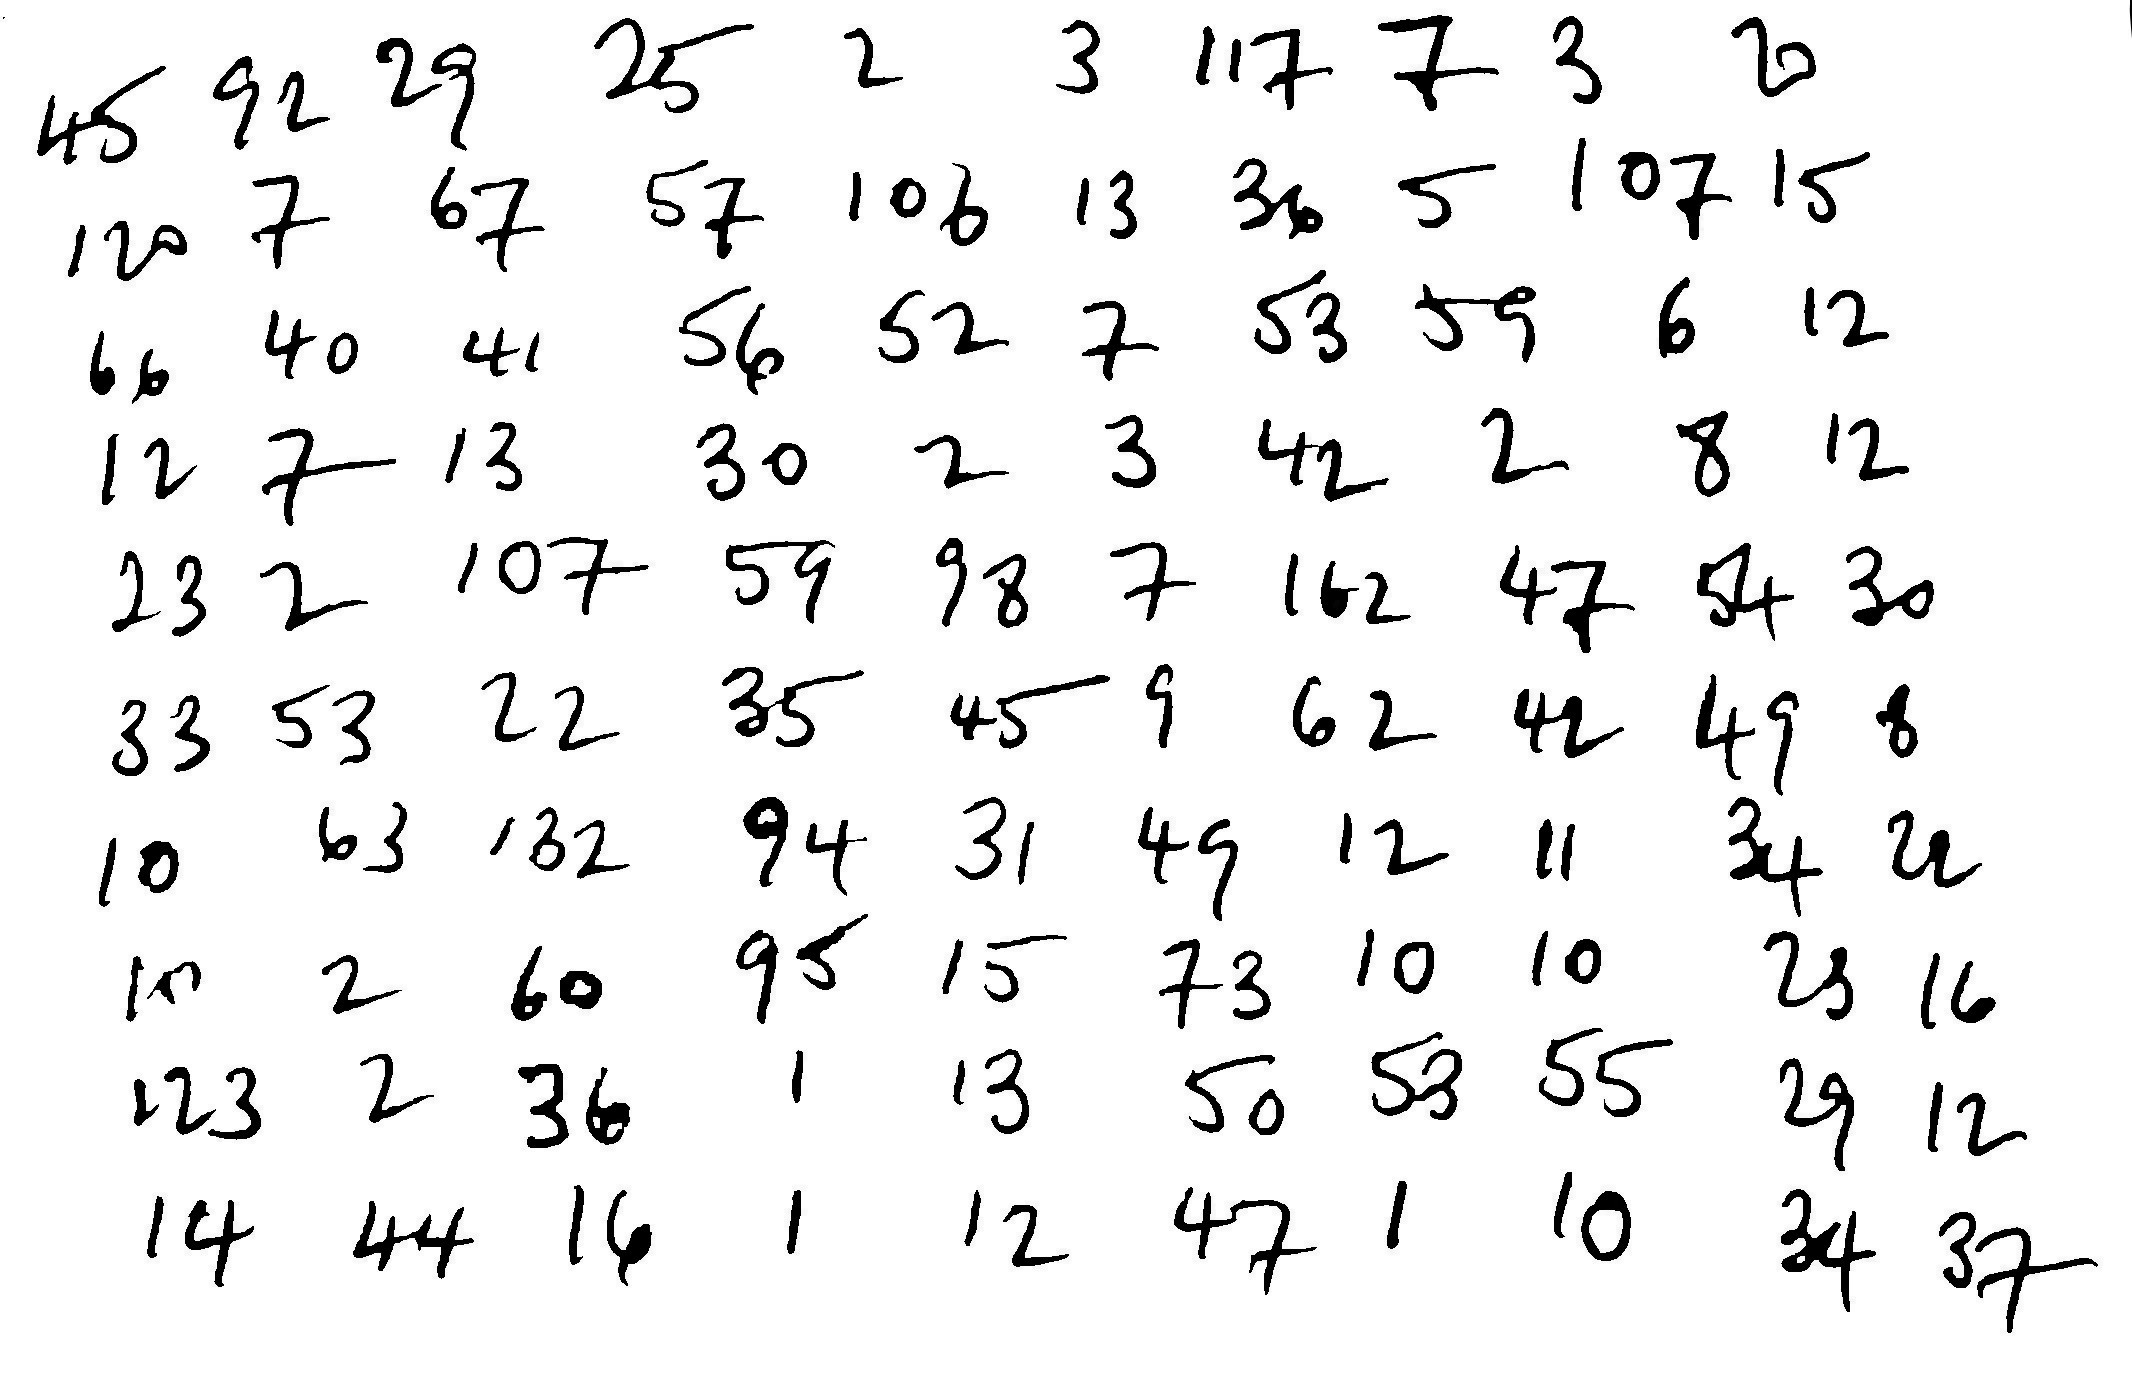 45 92 29 25 2 3 117 7 3 20
120 7 67 57 106 13 36 5 107 15
66 40 41 56 52 7 53 59 6 12
12 7 13 30 2 3 42 2 8 12
23 2 107 59 98 7 162 47 54 30
33 53 22 35 45 9 62 42 49 8
10 63 132 94 31 49 12 11 34 22
2 60 95 15 73 10 10 23 16
123 2 36 1 13 50 53 55 29 12
14 44 16 1 12 47 1 10 34 37